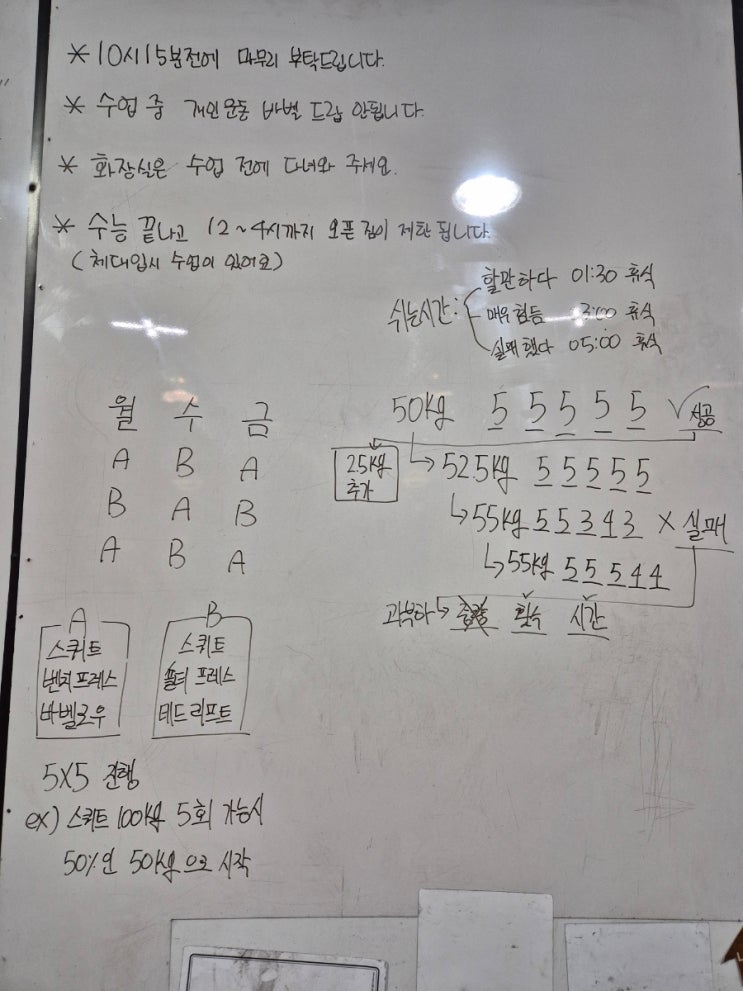 * 10시15분전에 마무리 부탁드립니다.
* 수업 중 개인운동 바벨 드랍 안됩니다.
* 화장실은 수업 전에 다녀와 주세요.
* 수능 끝나고 12~4시까지 오픈 짐이 제한됩니다.
(체대입시 수업이 있어요)
쉬는시간:
할만하다 01:30 휴식
매우힘듬 3:00 휴식
실패했다 05:00 휴식
월 수 금
A B A
B A B
A B A
50kg 5 5 5 5 5 ✓성공
2.5kg
추가
↳52.5kg 5 5 5 5 5
↳55kg 5 5 3 4 3 × 실패
↳55kg 5 5 5 4 4
과부하↳ 중량 횟수 시간
A
스쿼트
벤치프레스
바벨로우
B
스쿼트
숄더 프레스
데드리프트
5X5 진행
ex) 스쿼트 100kg 5회 가능시
50%인 50kg으로 시작